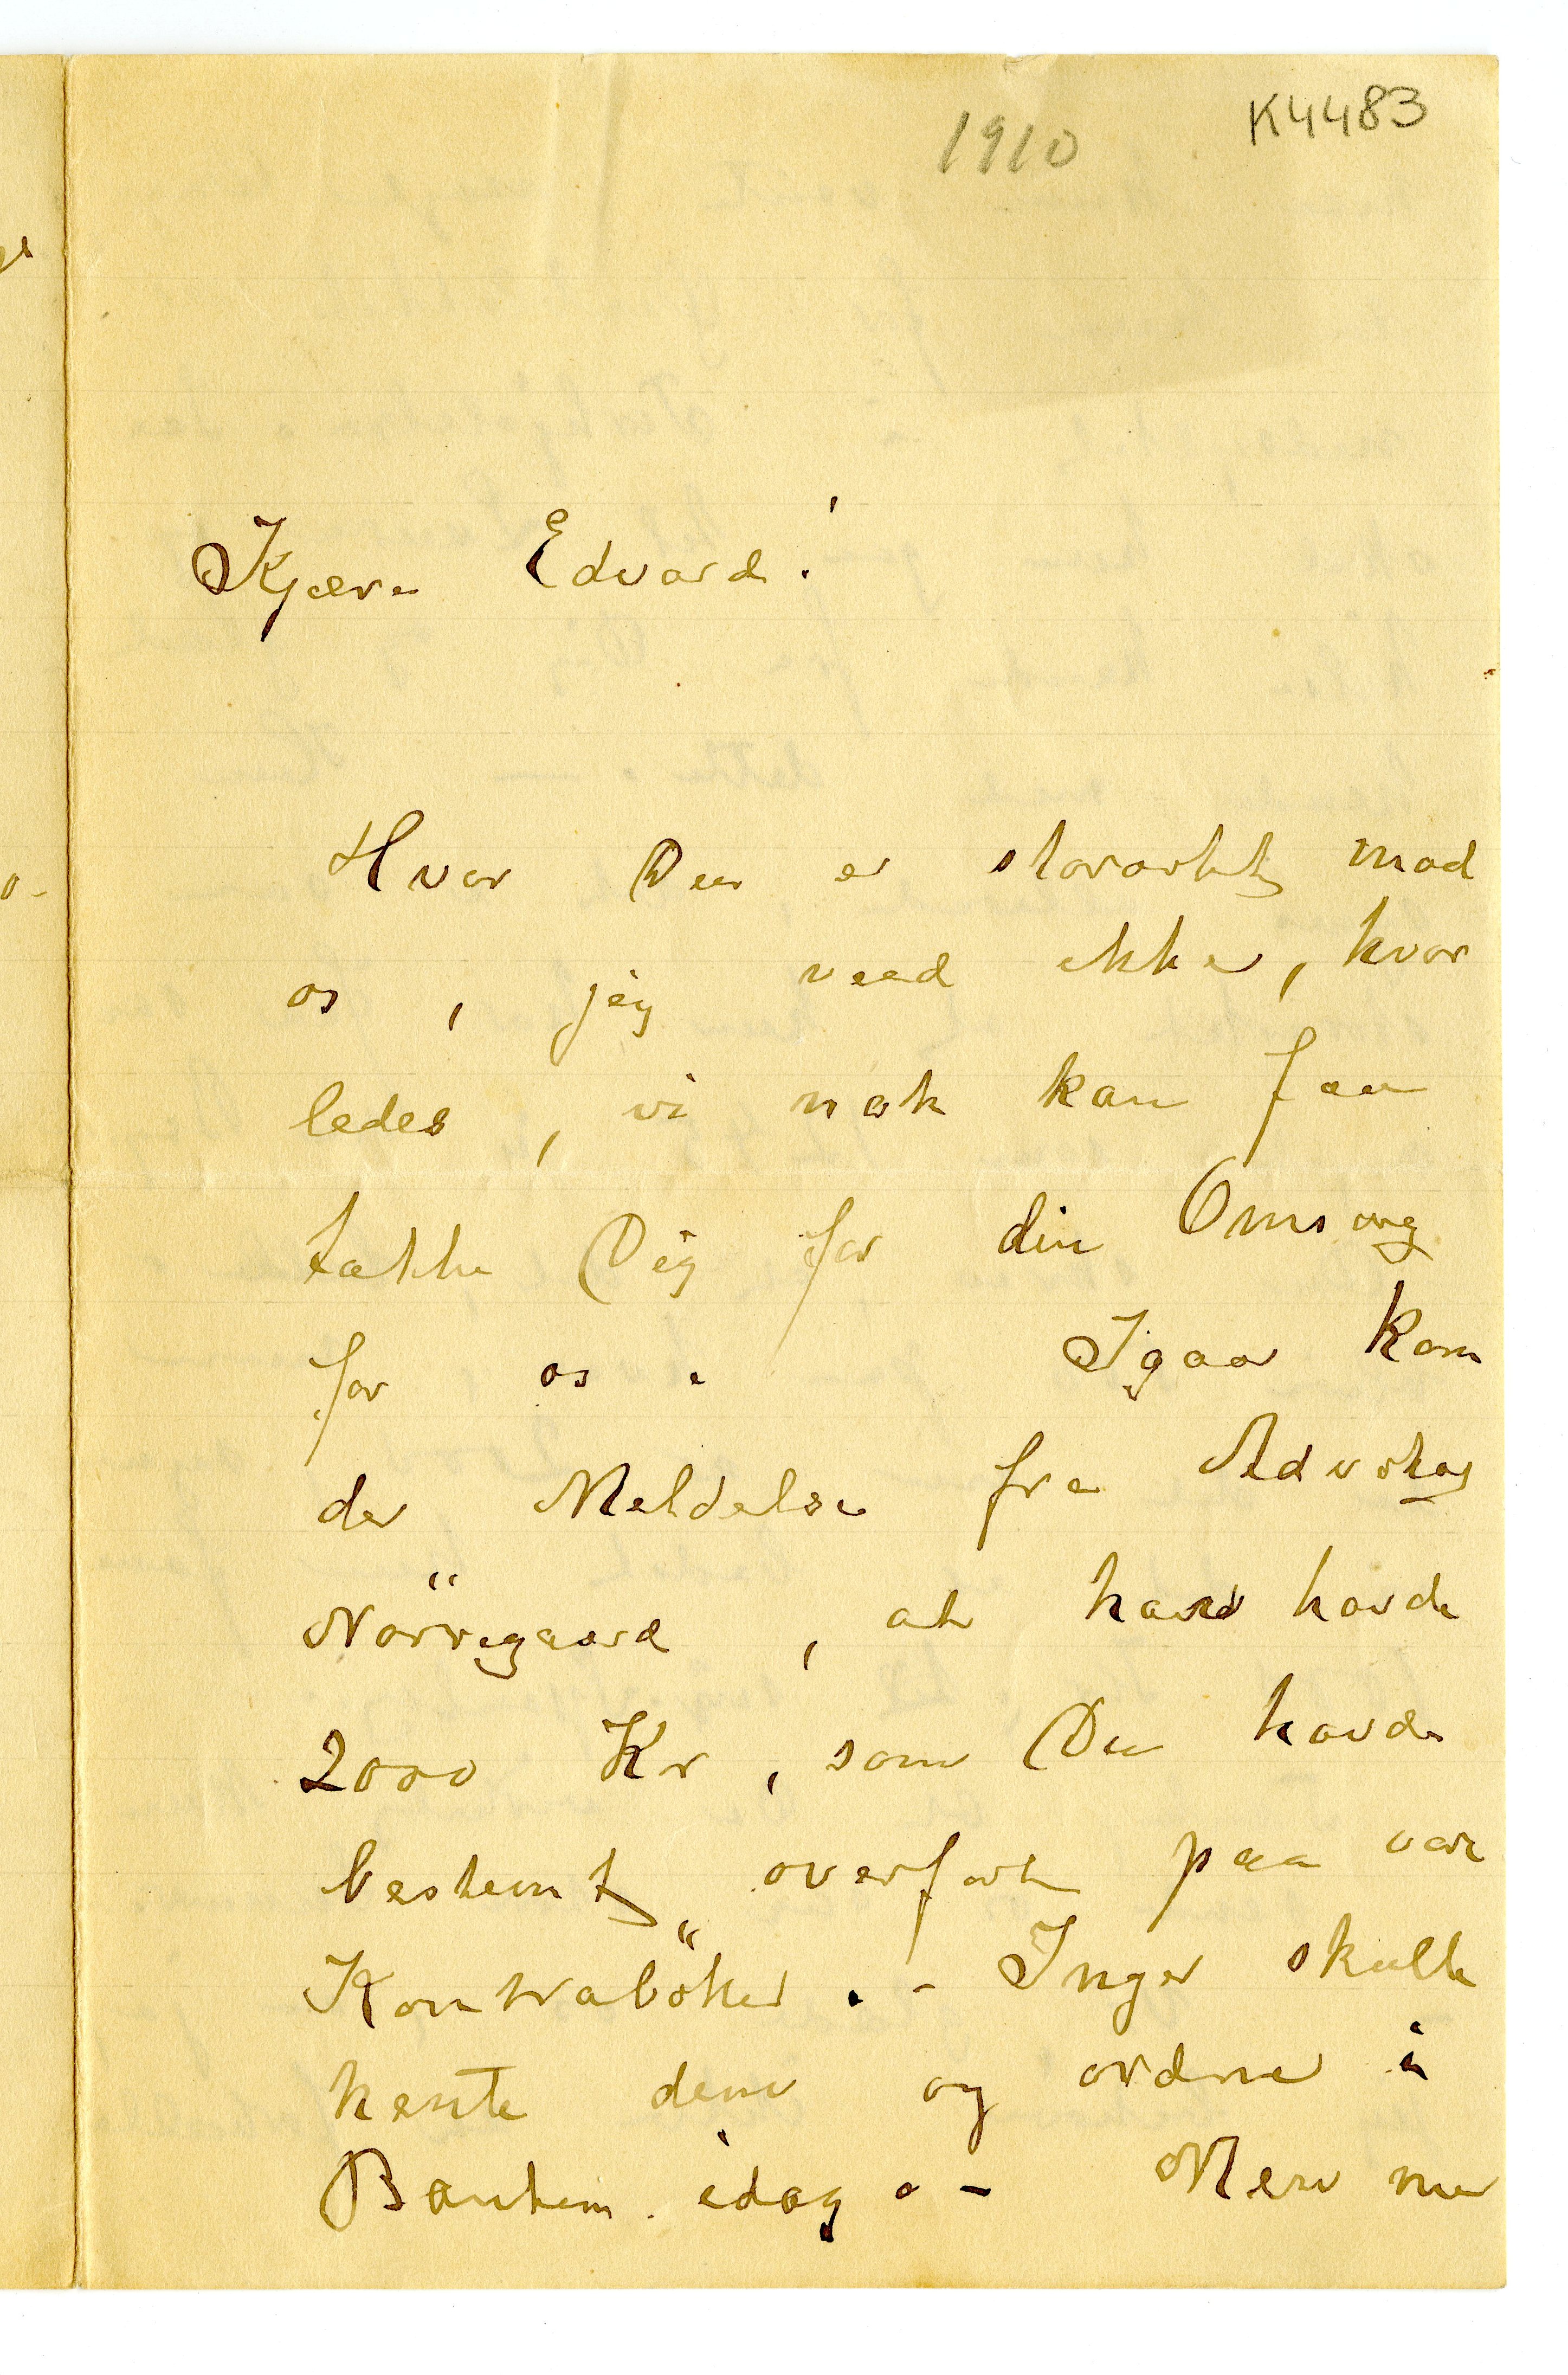 1910 K4483
Kjære Edvard!
Hvor Du er storartet mod
os, jeg veed ikke, hvor
ledes, vi nok kan faa
takke Dig for din Omsorg
for os. Igaar kom
der Meldelse fra Advokat
Nörregaard, at han havde
2000 Kr, som Du havde
bestemt overfört paa vore
Kontraböker. - Inger skulle
hente dem og ordne i
Banken idag. - Men nu